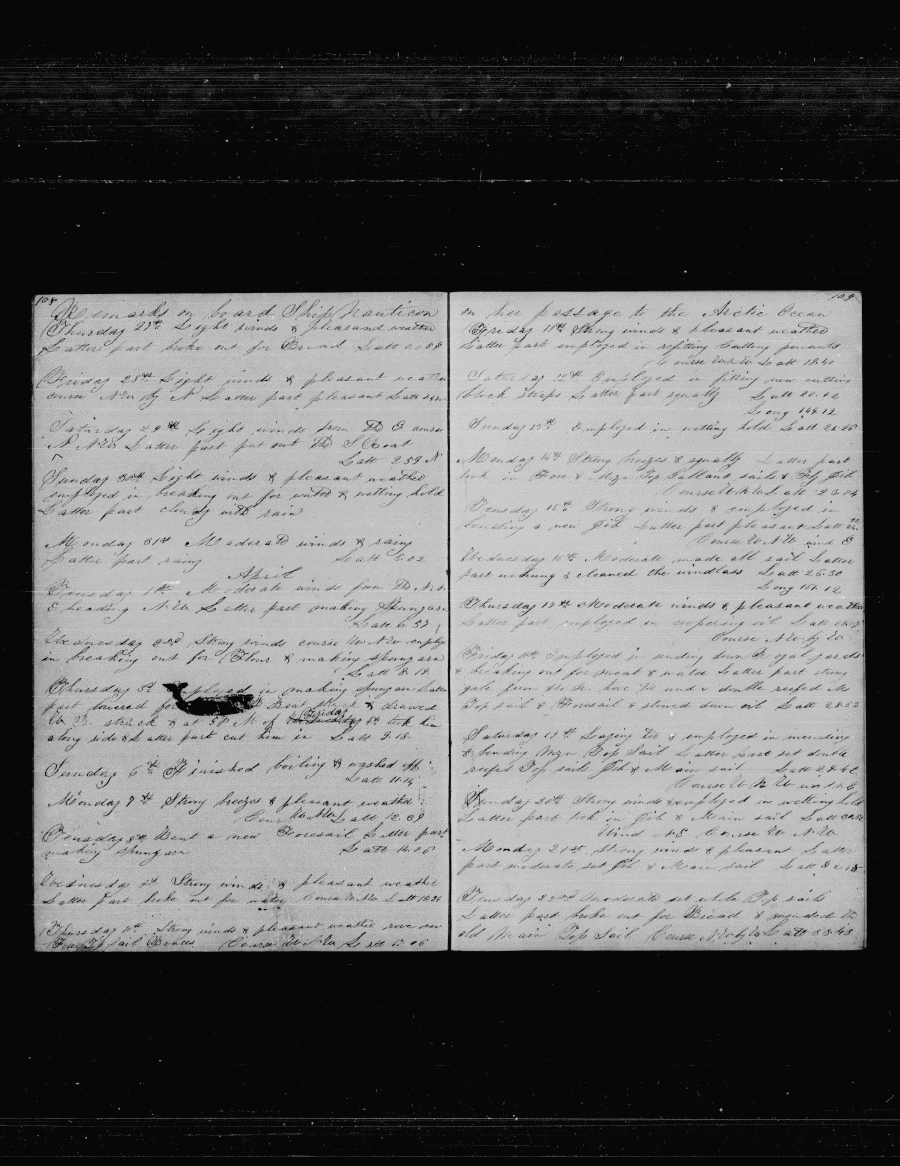 108
Remarks on board Ship Nauticon
Thursday 27th Light winds & pleasant weather
Latter part broke out for Bread Latt
Friday 28th Light winds & pleasant weather
course NW by N Latter part pleasant Latt
Saturday 29th Light winds from Th E course
N NW Latter part put out Th S Boat
Latt 2.59 N
Sunday 30th Light winds & pleasant weather
employed in breaking out for water & wetting hold
Latter part cloudy with rain
Monday 31st Moderate winds & rainy
Latter part rainy Latt 5.02
April
Tuesday 1st Moderate winds from Th
E heading NW Latter part making Spunyarn
Latt 6.57
Wednesday 2nd Strong winds course W NW employ
in breaking out for Flour & making spunyarn
Latt 8.14
Thursday 3d Employed in making spunyarn Latter
part lowered for B Boat struck & drawed
W. B. struck & at 5 P M of Friday 4th took him
along side & Latter part cut him in Latt 9.18
Sunday 6th Finished boiling & washed
Latt 11.14
Monday 7th Strong breezes & pleasant weather
Course W NW Latt 12.39
Tuesday 8th Bent a new Foresail Latter part
making spunyarn Latt 14.06
Wednesday 9th Strong winds & pleasant weather
Latter part broke out for water Course W NW Latt
Thursday 10th Strong winds & pleasant weather
Fore Top Sail Braces Course W NW Latt
109
on her passage to the Arctic Ocean
Friday 11th Strong winds & pleasant weather
Latter part employed in refitting Cutting penants
Course Latt 18.40
Saturday 12th Employed in fitting new cutting
block straps Latter part squally Latt 20.02
Long 149.12
Sunday 13th Employed in wetting hold Latt
Monday 14th Strong breezes & squally Latter part
took in Fore & Mzn Top Gallant sails & Fly Jib
Course Latt 23.04
Tuesday 15th Strong winds & employed in
bending a new Jib Latter part pleasant Latt
Course W NW wind E
Wednesday 16th Moderate made all sail Latter
part and cleaned the windlass Latt 26.30
Long 161.12
Thursday 17th Moderate winds & pleasant weather
Latter part employed in coopering oil Latt
Course NW by W
Friday 18th Employed in sending down Royal yards
& breaking out for meat & water Latter part strong
gale from hove too under double reefed M
Top sail & Foresail & stowed down oil Latt 28.53
Saturday 19th Laying too & employed in mending
& bending Mzn Top Sail Latter part set double
reefed Top sails Jib & Main sail Latt
Course W N W wind
Sunday 20th Strong winds & employed in wetting hold
Latter part took in Jib & Main sail Latt
Wind N.E. Course W NW
Monday 21st strong winds & pleasant Latter
part moderate set Jib & Main sail Latt
Tuesday 22nd Moderate set whole Top sails
Latter part broke out for Bread & mended Th
old Main Top Sail Course NW by W Latt 33.43